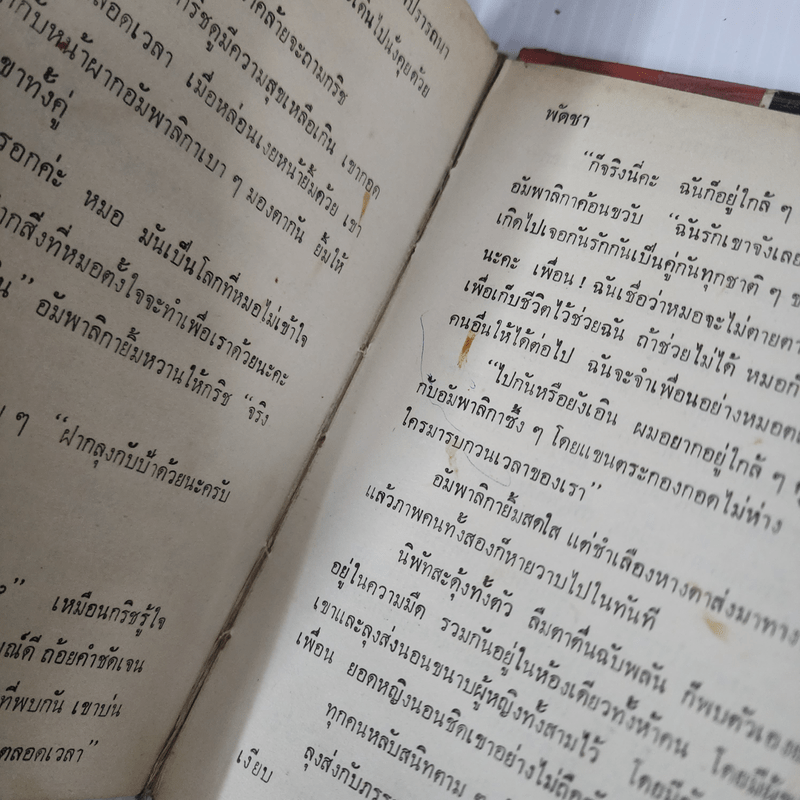 ปรารถนา
เดินไปนั่งคุยด้วย
คล้ายจะถามกริช
กริชดูมีความสุขเหลือเกิน เขากอด
ตลอดเวลา เมื่อหล่อนเงยหน้ายิ้มด้วย เขา
กับหน้าผากอัมพาลิกาเบา ๆ มองตากัน ยิ้มให้
เขาทั้งคู่
หรอกค่ะ หมอ มันเป็นโลกที่หมอไม่เข้าใจ
จากสิ่งที่หมอตั้งใจจะทำเพื่อเราด้วยนะคะ
อัมพาลิกายิ้มหวานให้กริช “จริง
ๆ “ฝากลุงกับป้าด้วยนะครับ
เหมือนกริชรู้ใจ
ถ้อยคำชัดเจน
ที่พบกัน เขาบ่น
ตลอดเวลา”
พัดชา
“ก็จริงนี่คะ ฉันก็อยู่ใกล้ ๆ
อัมพาลิกาค้อนขวับ “ฉันรักเขาจังเลย
เกิดไปเจอกันรักกันเป็นคู่กันทุกชาติ ๆ
นะคะ เพื่อน! ฉันเชื่อว่าหมอจะไม่ตายตา
เพื่อเก็บชีวิตไว้ช่วยฉัน ถ้าช่วยไม่ได้ หมอก็
คนอื่นให้ได้ต่อไป ฉันจะจำเพื่อนอย่างหมอตล
“ไปกันหรือยังเอิน ผมอยากอยู่ใกล้ ๆ
กับอัมพาลิกาซั้ง ๆ โดยแขนตระกองกอดไม่ห่าง
ใครมารบกวนเวลาของเรา”
อัมพาลิกายิ้มสดใส แต่ชำเลืองหางตาส่งมาทาง
แล้วภาพคนทั้งสองก็หายวาบไปในทันที
นิพัทสะดุ้งทั้งตัว ลืมตาตื่นฉับพลัน ก็พบตัวเอง
อยู่ในความมืด รวมกันอยู่ในห้องเดียวทั้งห้าคน โดยมี
เขาและลุงส่งนอนขนาบผู้หญิงทั้งสามไว้ โดยมี
เพื่อน ยอดหญิงนอนชิดเขาอย่างไม่ถือ
ทุกคนหลับสนิทตาม ๆ
ลุงส่งกับภรร
เงียบ